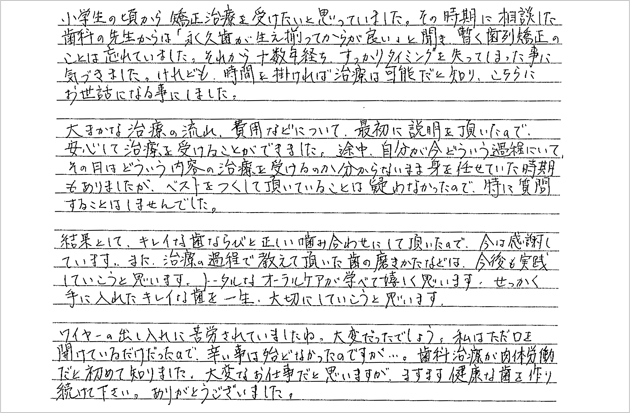 小学生の頃から矯正治療を受けたいと思っていました。その時期に相談した
歯科の先生からは「永久歯が生え揃ってからが良い」と聞き、暫く歯列矯正の
ことは忘れていました。それから十数年経ち、すっかりタイミングを失ってしまった事に
気づきました。けれども、時間を掛ければ治療は可能だと知り、こちらに
お世話になる事にしました。
大まかな治療の流れ、費用などについて、最初に説明を頂いたので、
安心して治療を受けることができました。途中、自分が今どういう過程にいて、
その日はどういう内容の治療を受けるのか分からないまま身を任せていた時期
もありましたが、ベストをつくして頂いていることは疑わなかったので、特に質問
することはしませんでした。
結果として、キレイな歯ならびと正しい噛み合わせにして頂いたので、今は感謝し
ています。また、治療の過程で教えて頂いた歯の磨きかたなどは、今後も実践
していこうと思います。トータルなオーラルケアが学べて嬉しく思います。せっかく
手に入れたキレイな歯を一生、大切にしていこうと思います。
ワイヤーの出し入れに苦労されていましたね。大変だったでしょう。私はただ口を
開けているだけだったので、辛い事は殆どなかったのですが…。歯科治療が肉体労働
だと初めて知りました。大変なお仕事だと思いますが、ますます健康な歯を作り
続けて下さい。ありがとうございました。